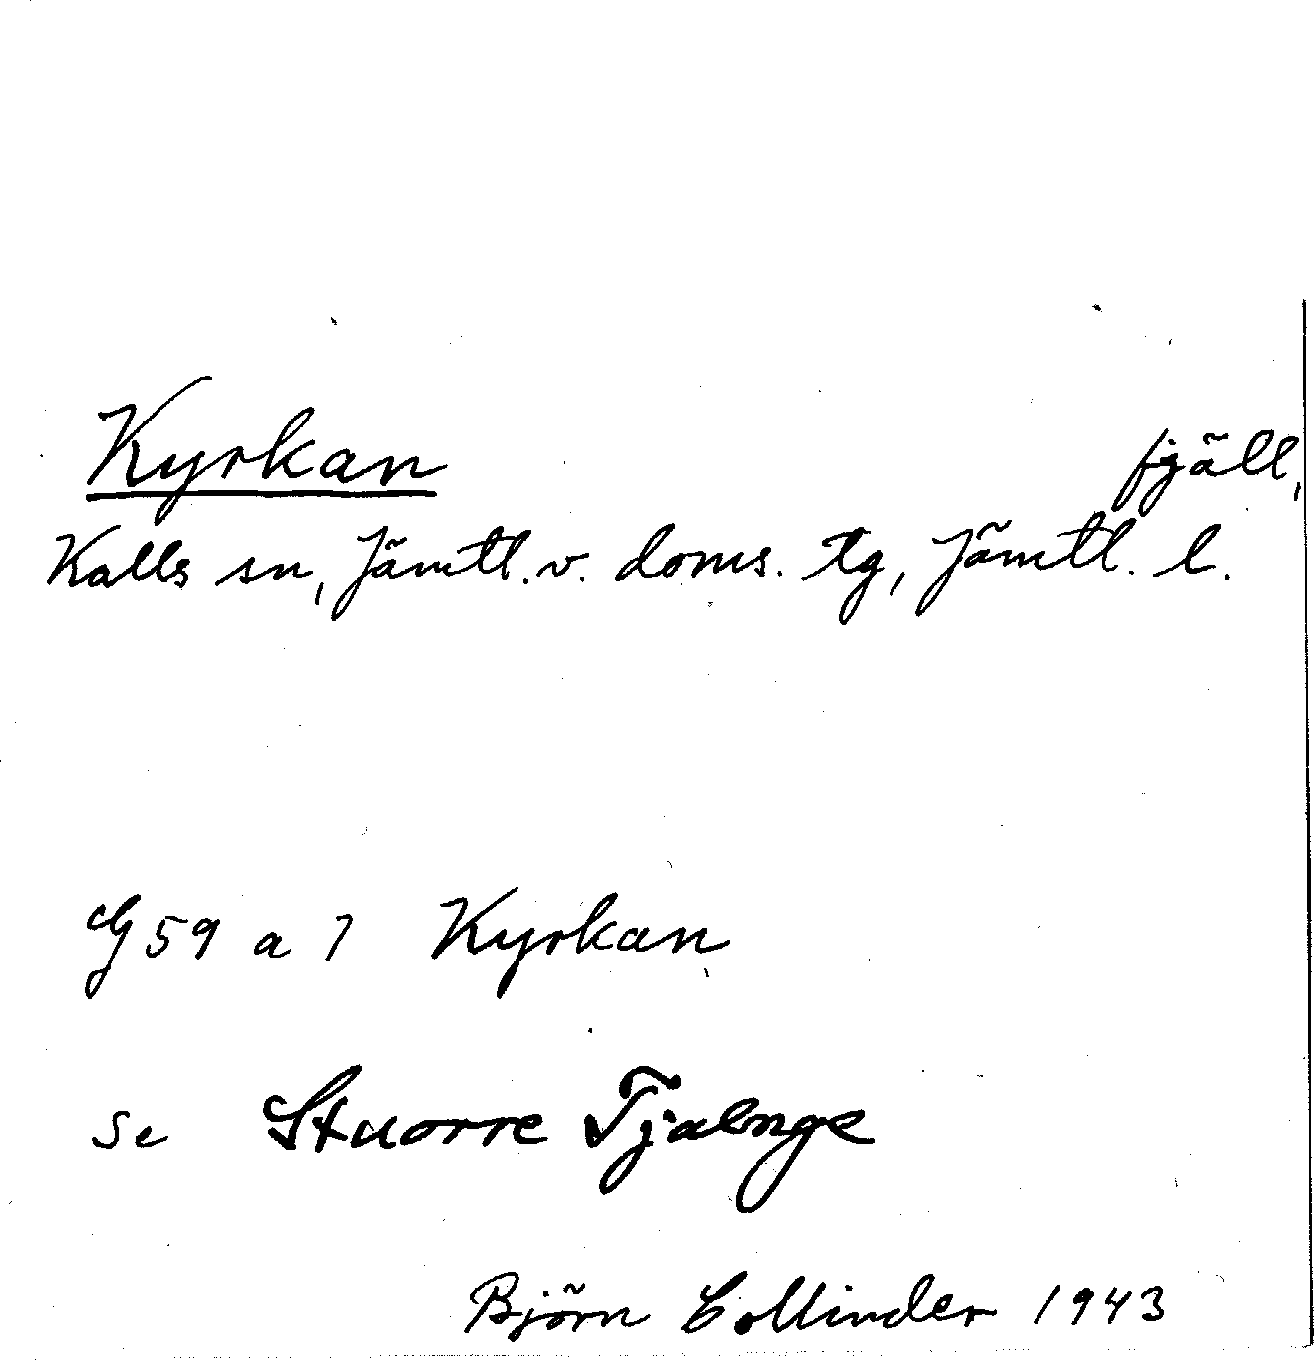 Kyrkan fjäll,
Kalls sn, Jämtl. v. doms. tg, Jämtl. l.
G 59 a 7 Kyrkan
se Stuorre Tjaenge
Björn Collinder 1943